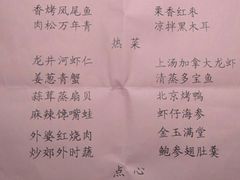 香烤凤尾鱼 果香红枣
肉松万年青 凉拌黑木耳
热菜
龙井河虾仁 上汤加拿大龙虾
姜葱青蟹 清蒸多宝鱼
蒜茸蒸扇贝 北京烤鸭
麻辣馋嘴蛙 虾仔海参
外婆红烧肉 金玉满堂
炒郊外时蔬 鲍参翅肚羹
点心